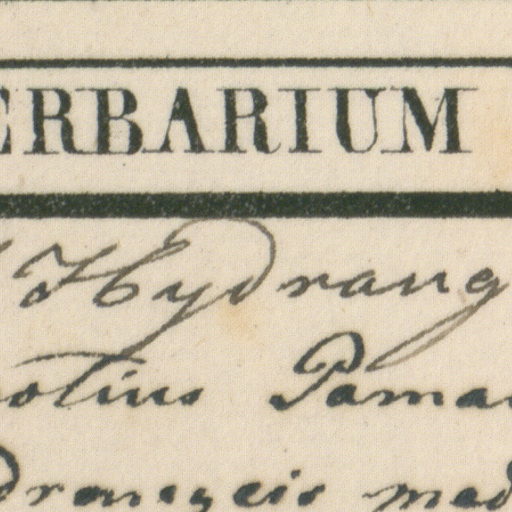 ERBARIUM
Hydrang
otius Pama
drangeis med